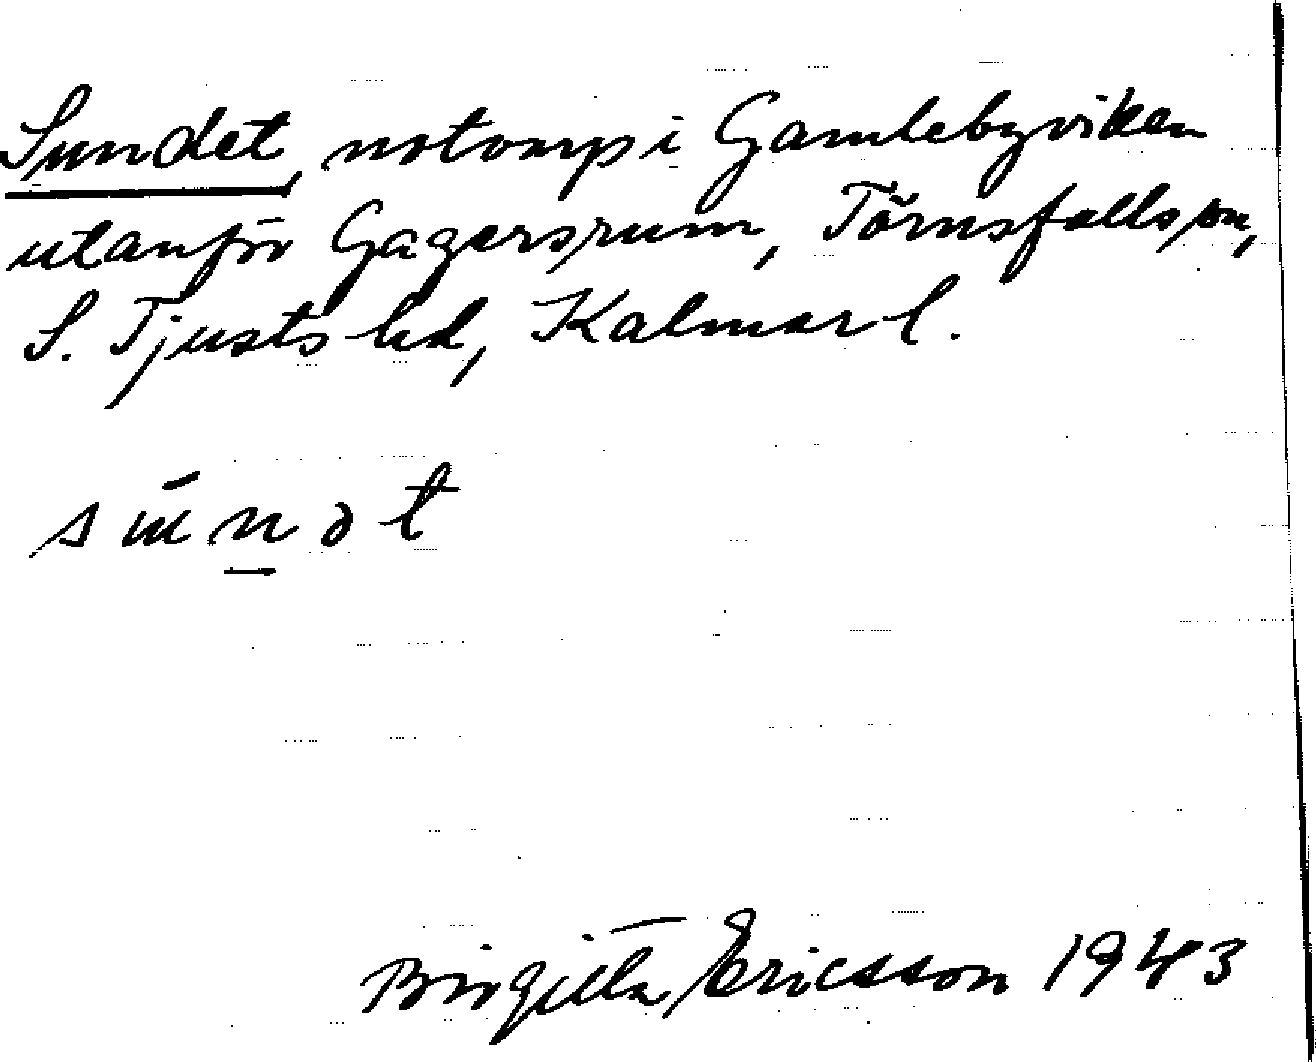 Sundet, notvarp i Gamlebyviken
utanför Gagersrum, Törnsfalls sn,
S. Tjusts hd, Kalmar l.
Birgitta Ericsson 1943